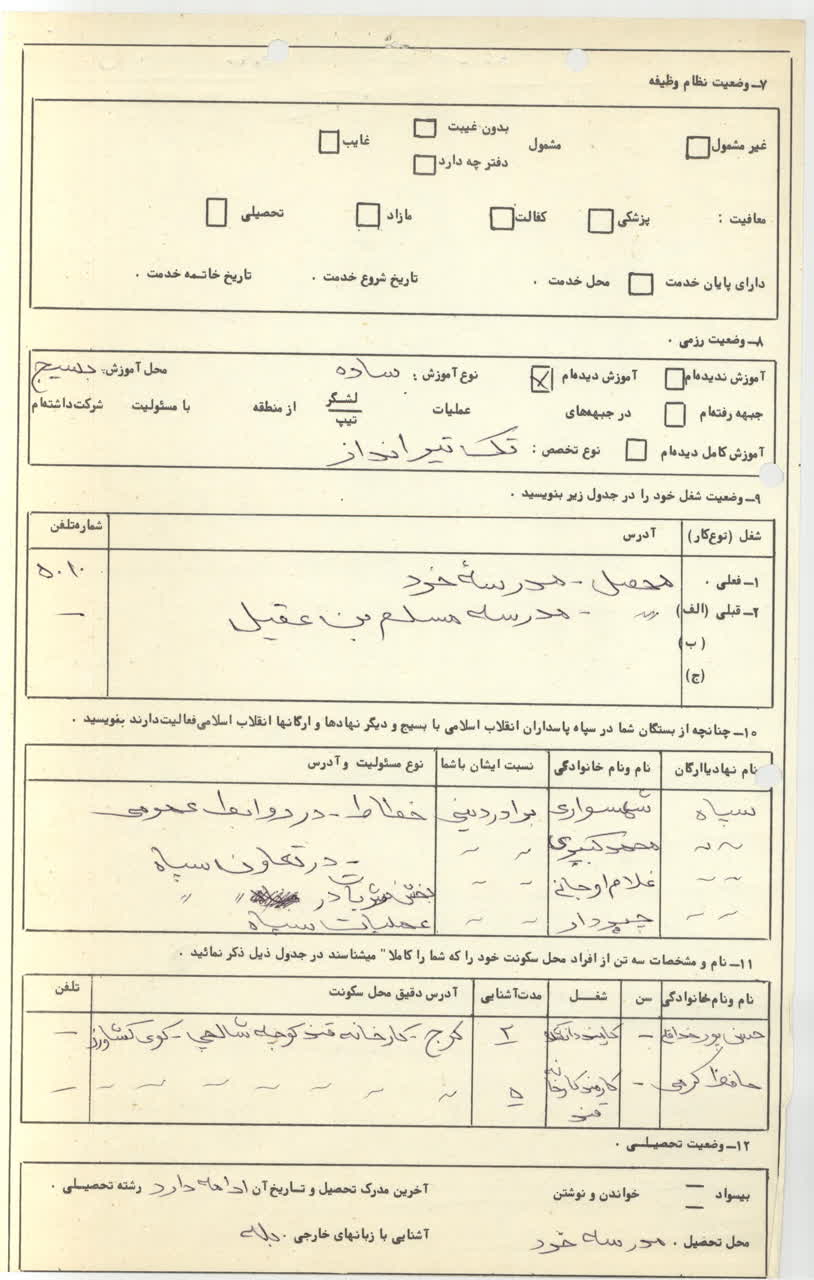 ۷ـ وضعیت نظام وظیفه
غیر مشمول مشمول بدون غیبت غایب
دفتر چه دارد
معافیت : پزشکی کفالت مازاد تحصیلی
دارای پایان خدمت محل خدمت . تاریخ شروع خدمت . تاریخ خاتمه خدمت .
۸ـ وضعیت رزمی .
آموزش ندیدهام آموزش دیدهام نوع آموزش : ساده محل آموزش : بسیج
جبهه رفتهام در جبهههای عملیات لشگر از منطقه با مسئولیت شرکت داشتهام
تیپ
آموزش کامل دیدهام نوع تخصص : تک تیر انداز
۹ـ وضعیت شغل خود را در جدول زیر بنویسید .
شغل (نوع کار) آدرس شماره تلفن
۱ـ فعلی . محصل - مدرسهٔ خود ۵۰۱۰
۲ـ قبلی (الف) 〃 - مدرسه مسلم بن عقیل —
(ب)
(ج)
۱۰ـ چنانچه از بستگان شما در سپاه پاسداران انقلاب اسلامی با بسیج و دیگر نهادها و ارگانها انقلاب اسلامی فعالیت دارند بنویسید .
نام نهاد یا ارگان نام و نام خانوادگی نسبت ایشان با شما نوع مسئولیت و آدرس
سپاه شهسواری برادر دینی خطاط - در روابط عمومی
〃 〃 محمد 〃 〃 - در تعاون سپاه
〃 〃 غلام اوجانی 〃 〃 بخش در 〃 〃
〃 〃 چیپردار 〃 〃 عملیات سپاه
۱۱ـ نام و مشخصات سه تن از افراد محل سکونت خود را که شما را کاملا" میشناسند در جدول ذیل ذکر نمائید .
نام و نام خانوادگی سن شغل مدت آشنایی آدرس دقیق محل سکونت تلفن
حسن پور — ۲ کرج - کارخانه قند کوچه صالحی - کوی کشاورز —
حافظ کرمی — کارمند کارخانه قند ۵ 〃 〃 〃 〃 〃 〃 〃 —
۱۲ـ وضعیت تحصیلی .
بیسواد خواندن و نوشتن آخرین مدرک تحصیل و تاریخ آن ادامه دارد رشته تحصیلی .
محل تحصیل . مدرسه خود آشنایی با زبانهای خارجی . بله